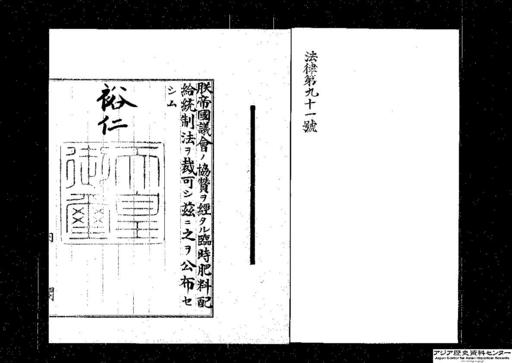 法律第九十一號
朕帝國議會ノ協贊ヲ經タル臨時肥料配
給統制法ヲ裁可シ茲ニ之ヲ公布セ
シム
裕仁
天皇
御璽
内閣
アジア歴史資料センター
Japan Center for Asian Historical Records